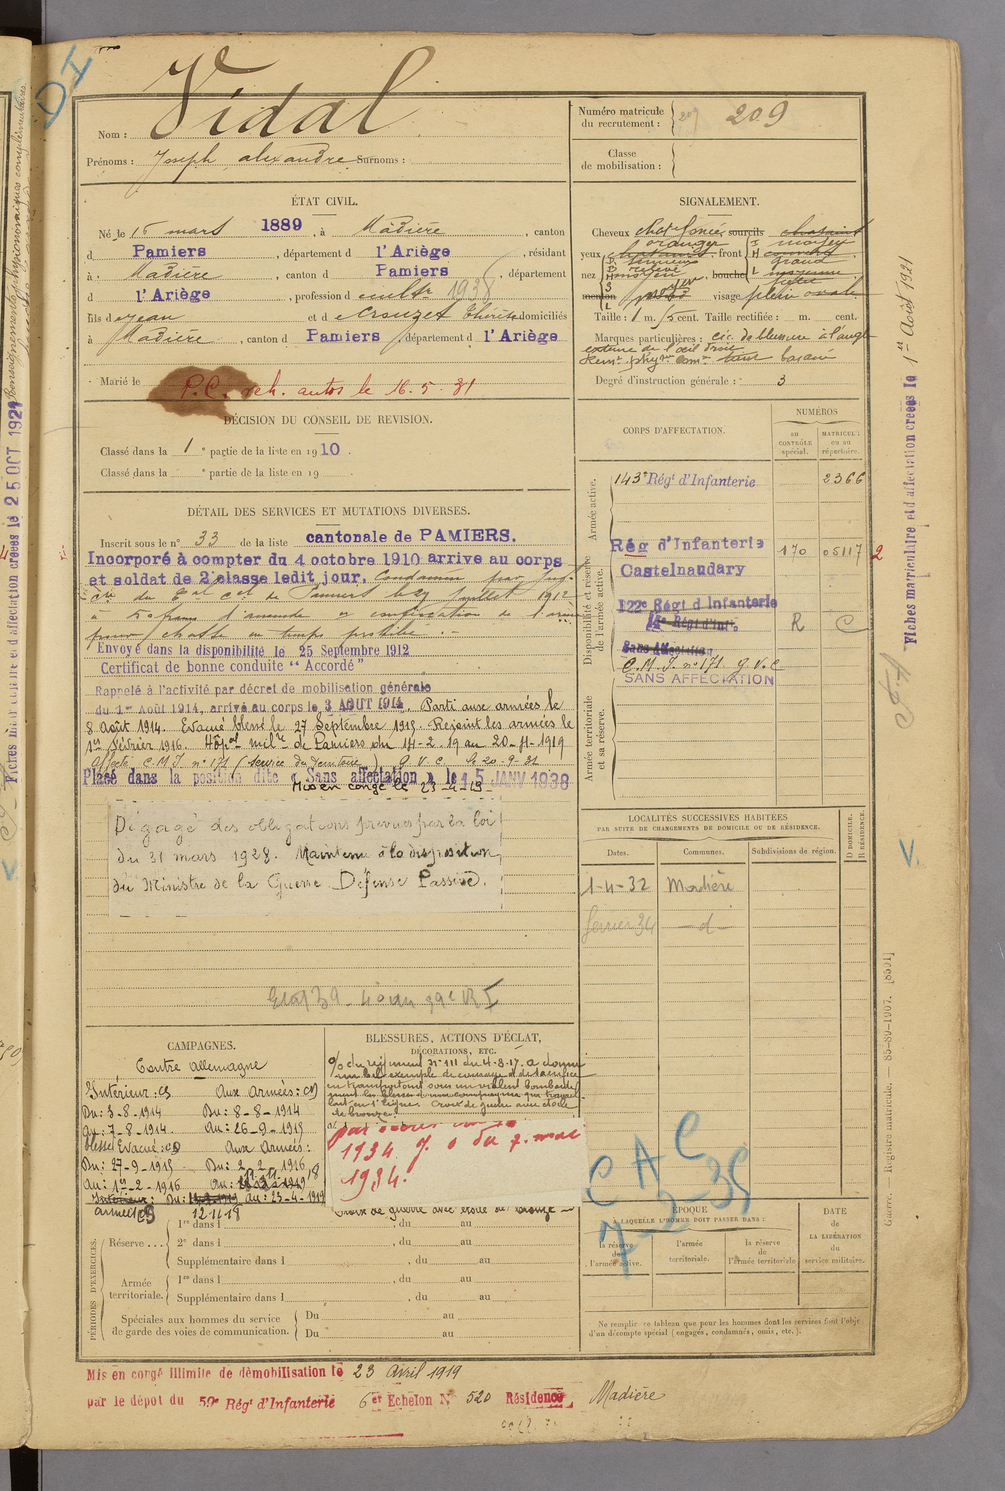 Vidal
Nom :
Prénoms : Joseph alexandre Surnoms :
Numéro matricule du recrutement : 209
Classe de mobilisation :
ÉTAT CIVIL.
Né le 15 mars 1889, à Madière, canton
d Pamiers, département d l'Ariège, résidant
à Madière, canton d Pamiers, département
d l'Ariège, profession d cultr 1938
fils de Jean et de Crouzet domiciliés
à Madière, canton d Pamiers département d l'Ariège
Marié le
P.C. autos le 16. 5. 31
SIGNALEMENT.
Cheveux chat. foncé sourcils chatains
yeux front moyen
nez bouche moyenne
menton visage plein ovale
Taille : 1 m. cent. Taille rectifiée : m. cent.
Marques particulières : cic. de blessure à l'angle
externe de l'œil droit
Degré d'instruction générale : 3
DÉCISION DU CONSEIL DE REVISION.
Classé dans la 1e partie de la liste en 1910.
Classé dans la e partie de la liste en 19
CORPS D'AFFECTATION.
NUMÉROS
au CONTRÔLE spécial.
MATRICULE ou au répertoire.
Armée active.
143e Régt d'Infanterie 2366
Disponibilité et réserve de l'armée active.
Rég d'Infanterie 170 05117 2
Castelnaudary
122e Régt d'Infanterie
R C
Sans Affectation
C.M.I. n° 171 G.V.C
SANS AFFECTATION
Armée territoriale et sa réserve.
DÉTAIL DES SERVICES ET MUTATIONS DIVERSES.
Inscrit sous le n° 33 de la liste cantonale de PAMIERS.
Incorporé à compter du 4 octobre 1910 arrive au corps
et soldat de 2e classe ledit jour. Condamné par
Pamiers le 29 juillet 1912
à 50 francs d'amende et confiscation de l'arme
pour chasse en temps prohibé.
Envoyé dans la disponibilité le 25 Septembre 1912
Certificat de bonne conduite "Accordé"
Rappelé à l'activité par décret de mobilisation générale
du 1er Août 1914, arrivé au corps le 3 AOUT 1914. Parti aux armées le
8 Août 1914. Evacué blessé le 27 Septembre 1915. Rejoint les armées le
1er Février 1916. Hôpal milre de Pamiers du 14-2-19 au 20-4-1919
Affecté C.M.I. n° 171 (service du territoire) G.V.C le 20-9-31
Placé dans la position dite « Sans affectation » le 15 JANV 1938
Mis en congé le 23-4-19
Dégagé des obligations prévues par la loi
du 31 mars 1928. Maintenu à la disposition
du Ministre de la Guerre Défense Passive.
LOCALITÉS SUCCESSIVES HABITÉES
PAR SUITE DE CHANGEMENTS DE DOMICILE OU DE RÉSIDENCE.
Dates. Communes. Subdivisions de région. D DOMICILE. R RÉSIDENCE.
1-4-32 Madière
février 34 -d-
CAMPAGNES.
Contre Allemagne
Intérieur : CS Aux Armées : CD
Du : 3-8-1914 Du : 8-8-1914
Au : 7-8-1914. Au : 26-9-1915
Blessé Evacué : CD Aux Armées :
Du : 27-9-1915 Du : 2-2-1916
Au : 1er-2-1916 Au :
Intérieur : Du : Au : 23-4-1919
armées CS 12.11.18
BLESSURES, ACTIONS D'ÉCLAT,
DÉCORATIONS, ETC.
O/ du régiment N° 111 du 4-8-17. a donné
un bel exemple de courage et de sacrifice
en transportant sous un violent bombarde-
ment les blessés d'une compagnie qui travail-
lait en 1e ligne. Croix de guerre avec étoile
de bronze.
1934 J. O du 7. mai
1934.
Croix de guerre avec étoile de bronze
C A C
7-3-35
PÉRIODES D'EXERCICES.
Réserve ... 1re dans l , du au
2e dans l , du au
Supplémentaire dans l , du au
Armée territoriale. 1re dans l , du au
Supplémentaire dans l , du au
Spéciales aux hommes du service de garde des voies de communication. Du au
Du au
ÉPOQUE
À LAQUELLE L'HOMME DOIT PASSER DANS :
la réserve de l'armée active.
l'armée territoriale.
la réserve de l'armée territoriale
DATE DE LA LIBÉRATION du service militaire.
Ne remplir ce tableau que pour les hommes dont les services font l'objet
d'un décompte spécial (engagés, condamnés, omis, etc.).
Mis en congé illimité de démobilisation le 23 Avril 1919
par le dépôt du 59e Régt d'Infanterie 6er Echelon N° 520 Résidence Madière
Fiches matriculaire et d'affectation créées le 1er Août 1921
Fiches matriculaire et d'affectation créées le 25 OCT 1921
Guerre. — Registre matricule. — 85-89-1907. [8301]